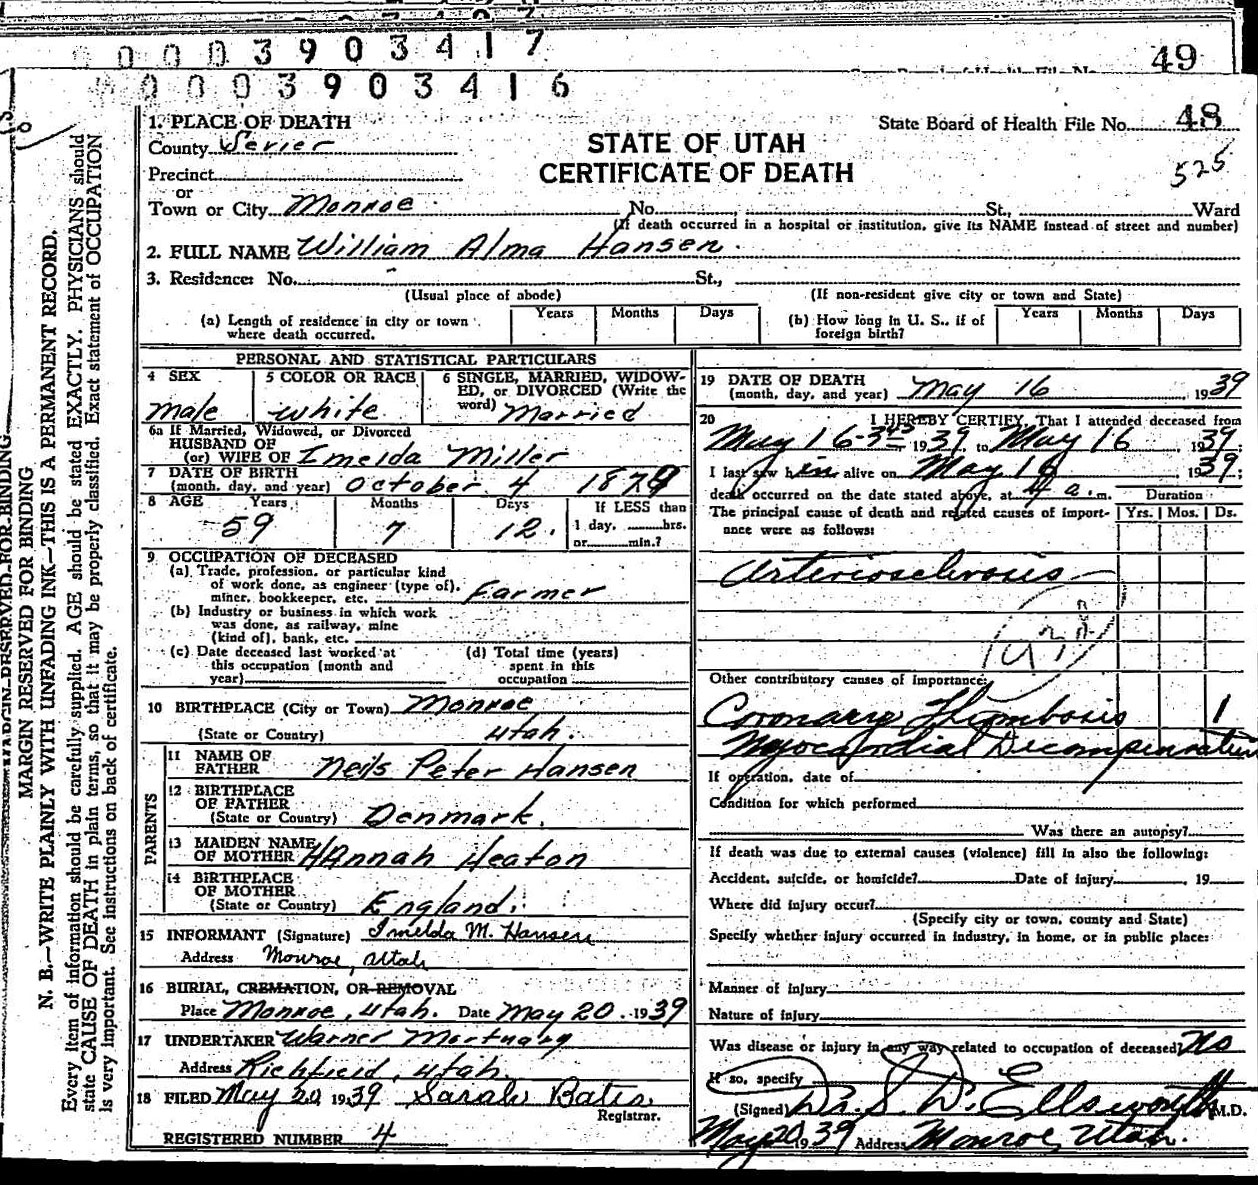 0 0 0 3 9 0 3 4 1 7
49
0 0 0 3 9 0 3 4 1 6
48
State Board of Health File No.
525
STATE OF UTAH
CERTIFICATE OF DEATH
1. PLACE OF DEATH
County Sevier
Precinct
or
Town or City Monroe No. St., Ward
(If death occurred in a hospital or institution, give its NAME instead of street and number)
2. FULL NAME William Alma Hansen
3. Residence: No. St.,
(Usual place of abode) (If non-resident give city or town and State)
(a) Length of residence in city or town where death occurred. Years Months Days
(b) How long in U. S., if of foreign birth? Years Months Days
PERSONAL AND STATISTICAL PARTICULARS
4 SEX
male
5 COLOR OR RACE
white
6 SINGLE, MARRIED, WIDOW-
ED, or DIVORCED (Write the
word) Married
6a If Married, Widowed, or Divorced
HUSBAND OF
(or) WIFE OF Imelda Miller
7 DATE OF BIRTH
(month, day, and year) October 4 1879
8 AGE Years Months Days If LESS than
59 7 12. 1 day, hrs.
or min.?
9 OCCUPATION OF DECEASED
(a) Trade, profession, or particular kind
of work done, as engineer (type of),
miner, bookkeeper, etc. Farmer
(b) Industry or business in which work
was done, as railway, mine
(kind of), bank, etc.
(c) Date deceased last worked at
this occupation (month and
year)
(d) Total time (years)
spent in this
occupation
10 BIRTHPLACE (City or Town) Monroe
(State or Country) Utah.
PARENTS
11 NAME OF
FATHER Neils Peter Hansen
12 BIRTHPLACE
OF FATHER
(State or Country) Denmark.
13 MAIDEN NAME
OF MOTHER Hannah Heaton
14 BIRTHPLACE
OF MOTHER
(State or Country) England.
15 INFORMANT (Signature) Imelda M. Hansen
Address Monroe, Utah
16 BURIAL, CREMATION, OR REMOVAL
Place Monroe, Utah. Date May 20. 1939
17 UNDERTAKER Warner Mortuary
Address Richfield, Utah.
18 FILED May 20 1939 Sarah Bates
Registrar.
REGISTERED NUMBER 4
19 DATE OF DEATH
(month, day, and year) May 16, 1939
20 I HEREBY CERTIFY, That I attended deceased from
May 16-3 45 1939, to May 16 1939.
I last saw him alive on May 16 1939;
death occurred on the date stated above, at 4 a. m. Duration
The principal cause of death and related causes of import-
ance were as follows: Yrs. Mos. Ds.
Arteriosclerosis
Other contributory causes of importance:
Coronary Thombosis 1
Myocardial Decompensation
If operation, date of
Condition for which performed
Was there an autopsy?
If death was due to external causes (violence) fill in also the following:
Accident, suicide, or homicide? Date of injury , 19
Where did injury occur?
(Specify city or town, county and State)
Specify whether injury occurred in industry, in home, or in public place:
Manner of injury
Nature of injury
Was disease or injury in any way related to occupation of deceased? No
If so, specify
(Signed) Dr. S. D. Ellsworth M.D.
May 20 1939 Address Monroe, Utah.
MARGIN RESERVED FOR BINDING
MARGIN RESERVED FOR BINDING
N. B.—WRITE PLAINLY WITH UNFADING INK—THIS IS A PERMANENT RECORD.
Every item of information should be carefully supplied. AGE should be stated EXACTLY. PHYSICIANS should
state CAUSE OF DEATH in plain terms, so that it may be properly classified. Exact statement of OCCUPATION
is very important. See instructions on back of certificate.